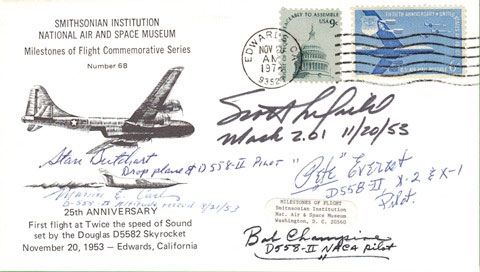 SMITHSONIAN INSTITUTION
NATIONAL AIR AND SPACE MUSEUM
Milestones of Flight Commemorative Series
Number 6B
EDWARDS CA
NOV 20
AM
9352
TO ASSEMBLE
USA 9c
Scott Crossfield
Mach 2.01 11/20/53
Stan Butchart
Drop plane & D558-II Pilot
"Pete" Everest
D558-II X-2 & X-1
Pilot.
Marion E. Carl
D-558-II altitude record 8/21/53
25th ANNIVERSARY
First flight at Twice the speed of Sound
set by the Douglas D5582 Skyrocket
November 20, 1953 — Edwards, California
MILESTONES OF FLIGHT
Smithsonian Institution
Nat. Air & Space Museum
Washington, D. C. 20560
Bob Champine
D558-II NACA pilot